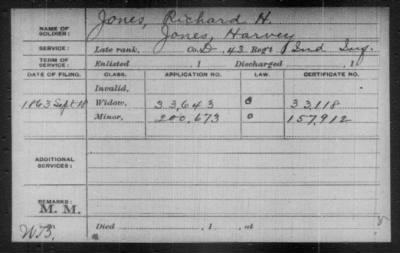 Jones, Richard H.
NAME OF SOLDIER: Jones, Harvey
SERVICE: Late rank, Co. D, 43 Reg't Ind Inf.
TERM OF SERVICE: Enlisted , 1 Discharged , 1
DATE OF FILING. CLASS. APPLICATION NO. LAW. CERTIFICATE NO.
Invalid,
1863 Sept 18 Widow, 33,643 33,118
Minor, 200,673 157,912
ADDITIONAL SERVICES:
REMARKS:
M. M.
Died , 1 , at